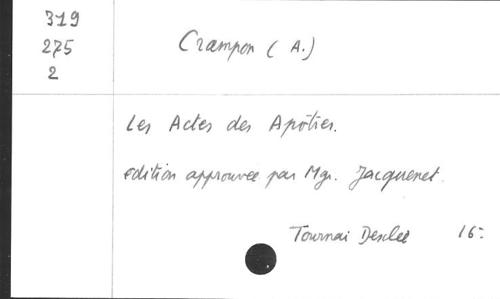 319
275
2
Crampon (A.)
Les Actes des Apôtres.
edition approuvée par Mgr. Jacquenet.
Tournai Desclée 16: